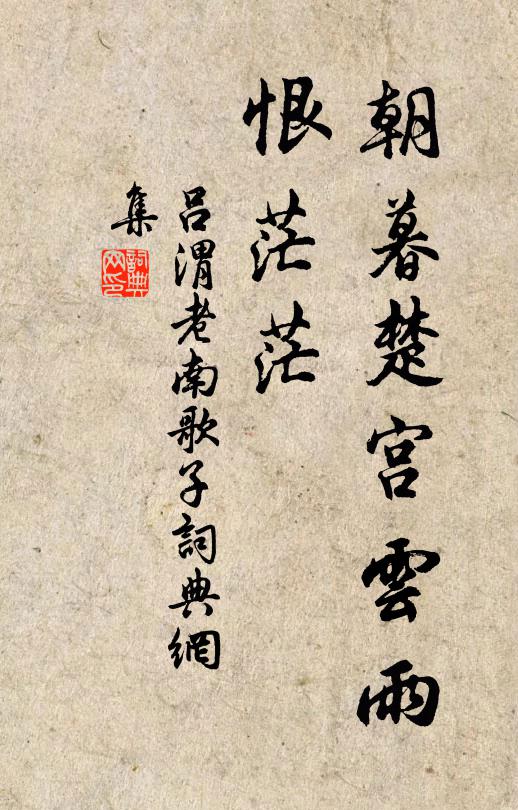 朝暮楚宫雲雨
恨茫茫
吕渭老南歌子詞典網
集
詞典
网印